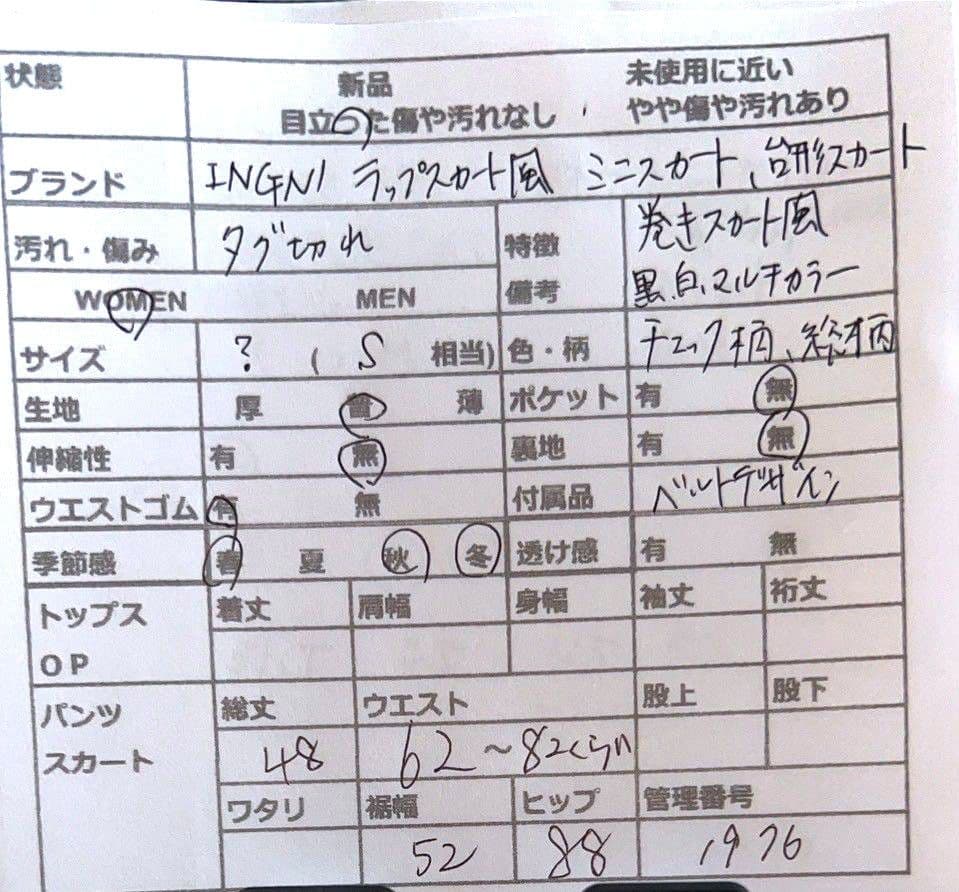 状態 新品 未使用に近い
目立った傷や汚れなし やや傷や汚れあり
ブランド INGNI ラップスカート風 ミニスカート、台形スカート
汚れ・傷み タグ切れ 特徴 巻きスカート風
備考 黒、白、マルチカラー
WOMEN MEN
サイズ ? ( S 相当) 色・柄 チェック柄、総柄
生地 厚 普 薄 ポケット 有 無
伸縮性 有 無 裏地 有 無
ウエストゴム 有 無 付属品 ベルトデザイン
季節感 春 夏 秋 冬 透け感 有 無
トップス 着丈 肩幅 身幅 袖丈 裄丈
OP
パンツ 総丈 ウエスト 股上 股下
スカート 48 62〜82くらい
ワタリ 裾幅 ヒップ 管理番号
52 88 1976